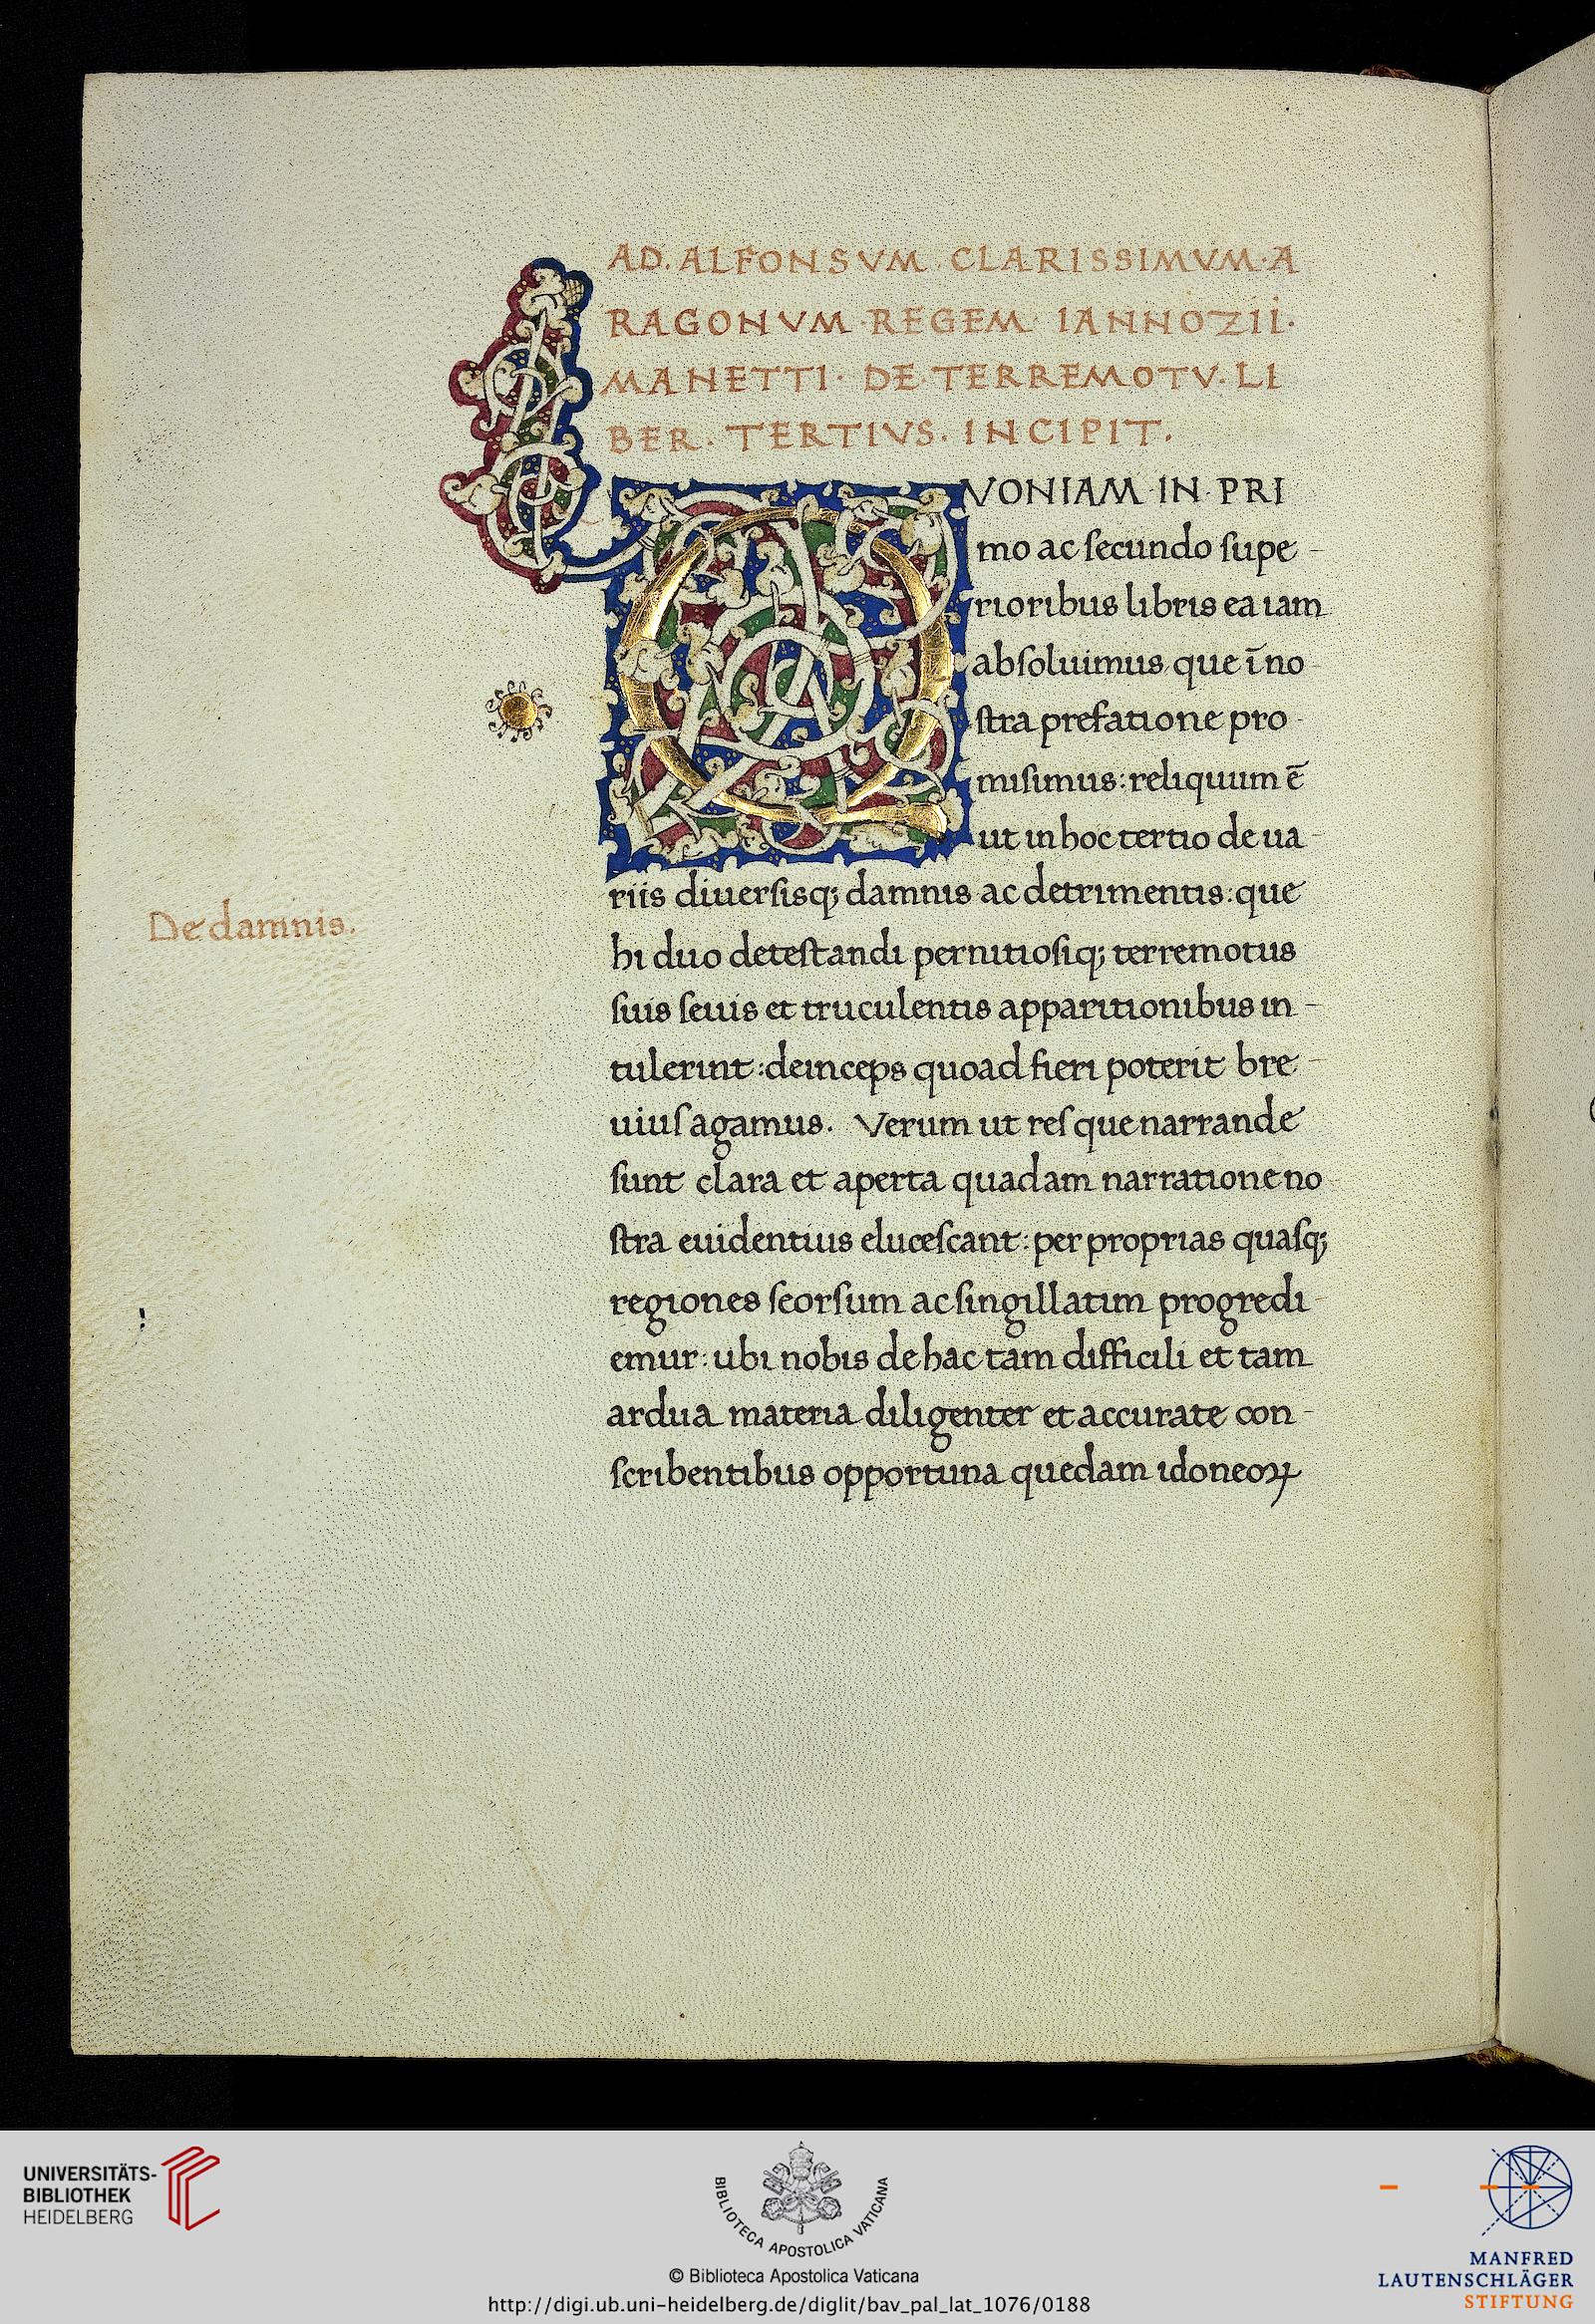 AD. ALFONSVM. CLARISSIMVM. A
RAGONVM. REGEM. IANNOZII.
MANETTI. DE. TERREMOTV. LI
BER. TERTIVS. INCIPIT.
QVONIAM. IN. PRI
mo ac ſecundo ſupe-
rioribus libris ea iam
abſoluimus que ī no
ſtra prefatione pro-
miſimus: reliquum ē
ut in hoc tertio de ua-
riis diuerſisq; damnis ac detrimentis: que
De damnis.
hi duo deteſtandi pernitioſiq; terremotus
ſuis ſeuis et truculentis apparitionibus in-
tulerint: deinceps quoad fieri poterit bre-
uiuſ agamus. Verum ut reſ que narrande
ſunt clara et aperta quadam narratione no
ſtra euidentius eluceſcant: per proprias quaſq;
regiones ſeorſum ac ſingillatim progredi-
emur: ubi nobis de hac tam difficili et tam
ardua materia diligenter et accurate con-
ſcribentibus opportuna quedam idoneoꝝ
UNIVERSITÄTS-
BIBLIOTHEK
HEIDELBERG
BIBLIOTECA APOSTOLICA VATICANA
© Biblioteca Apostolica Vaticana
http://digi.ub.uni-heidelberg.de/diglit/bav_pal_lat_1076/0188
MANFRED
LAUTENSCHLÄGER
STIFTUNG